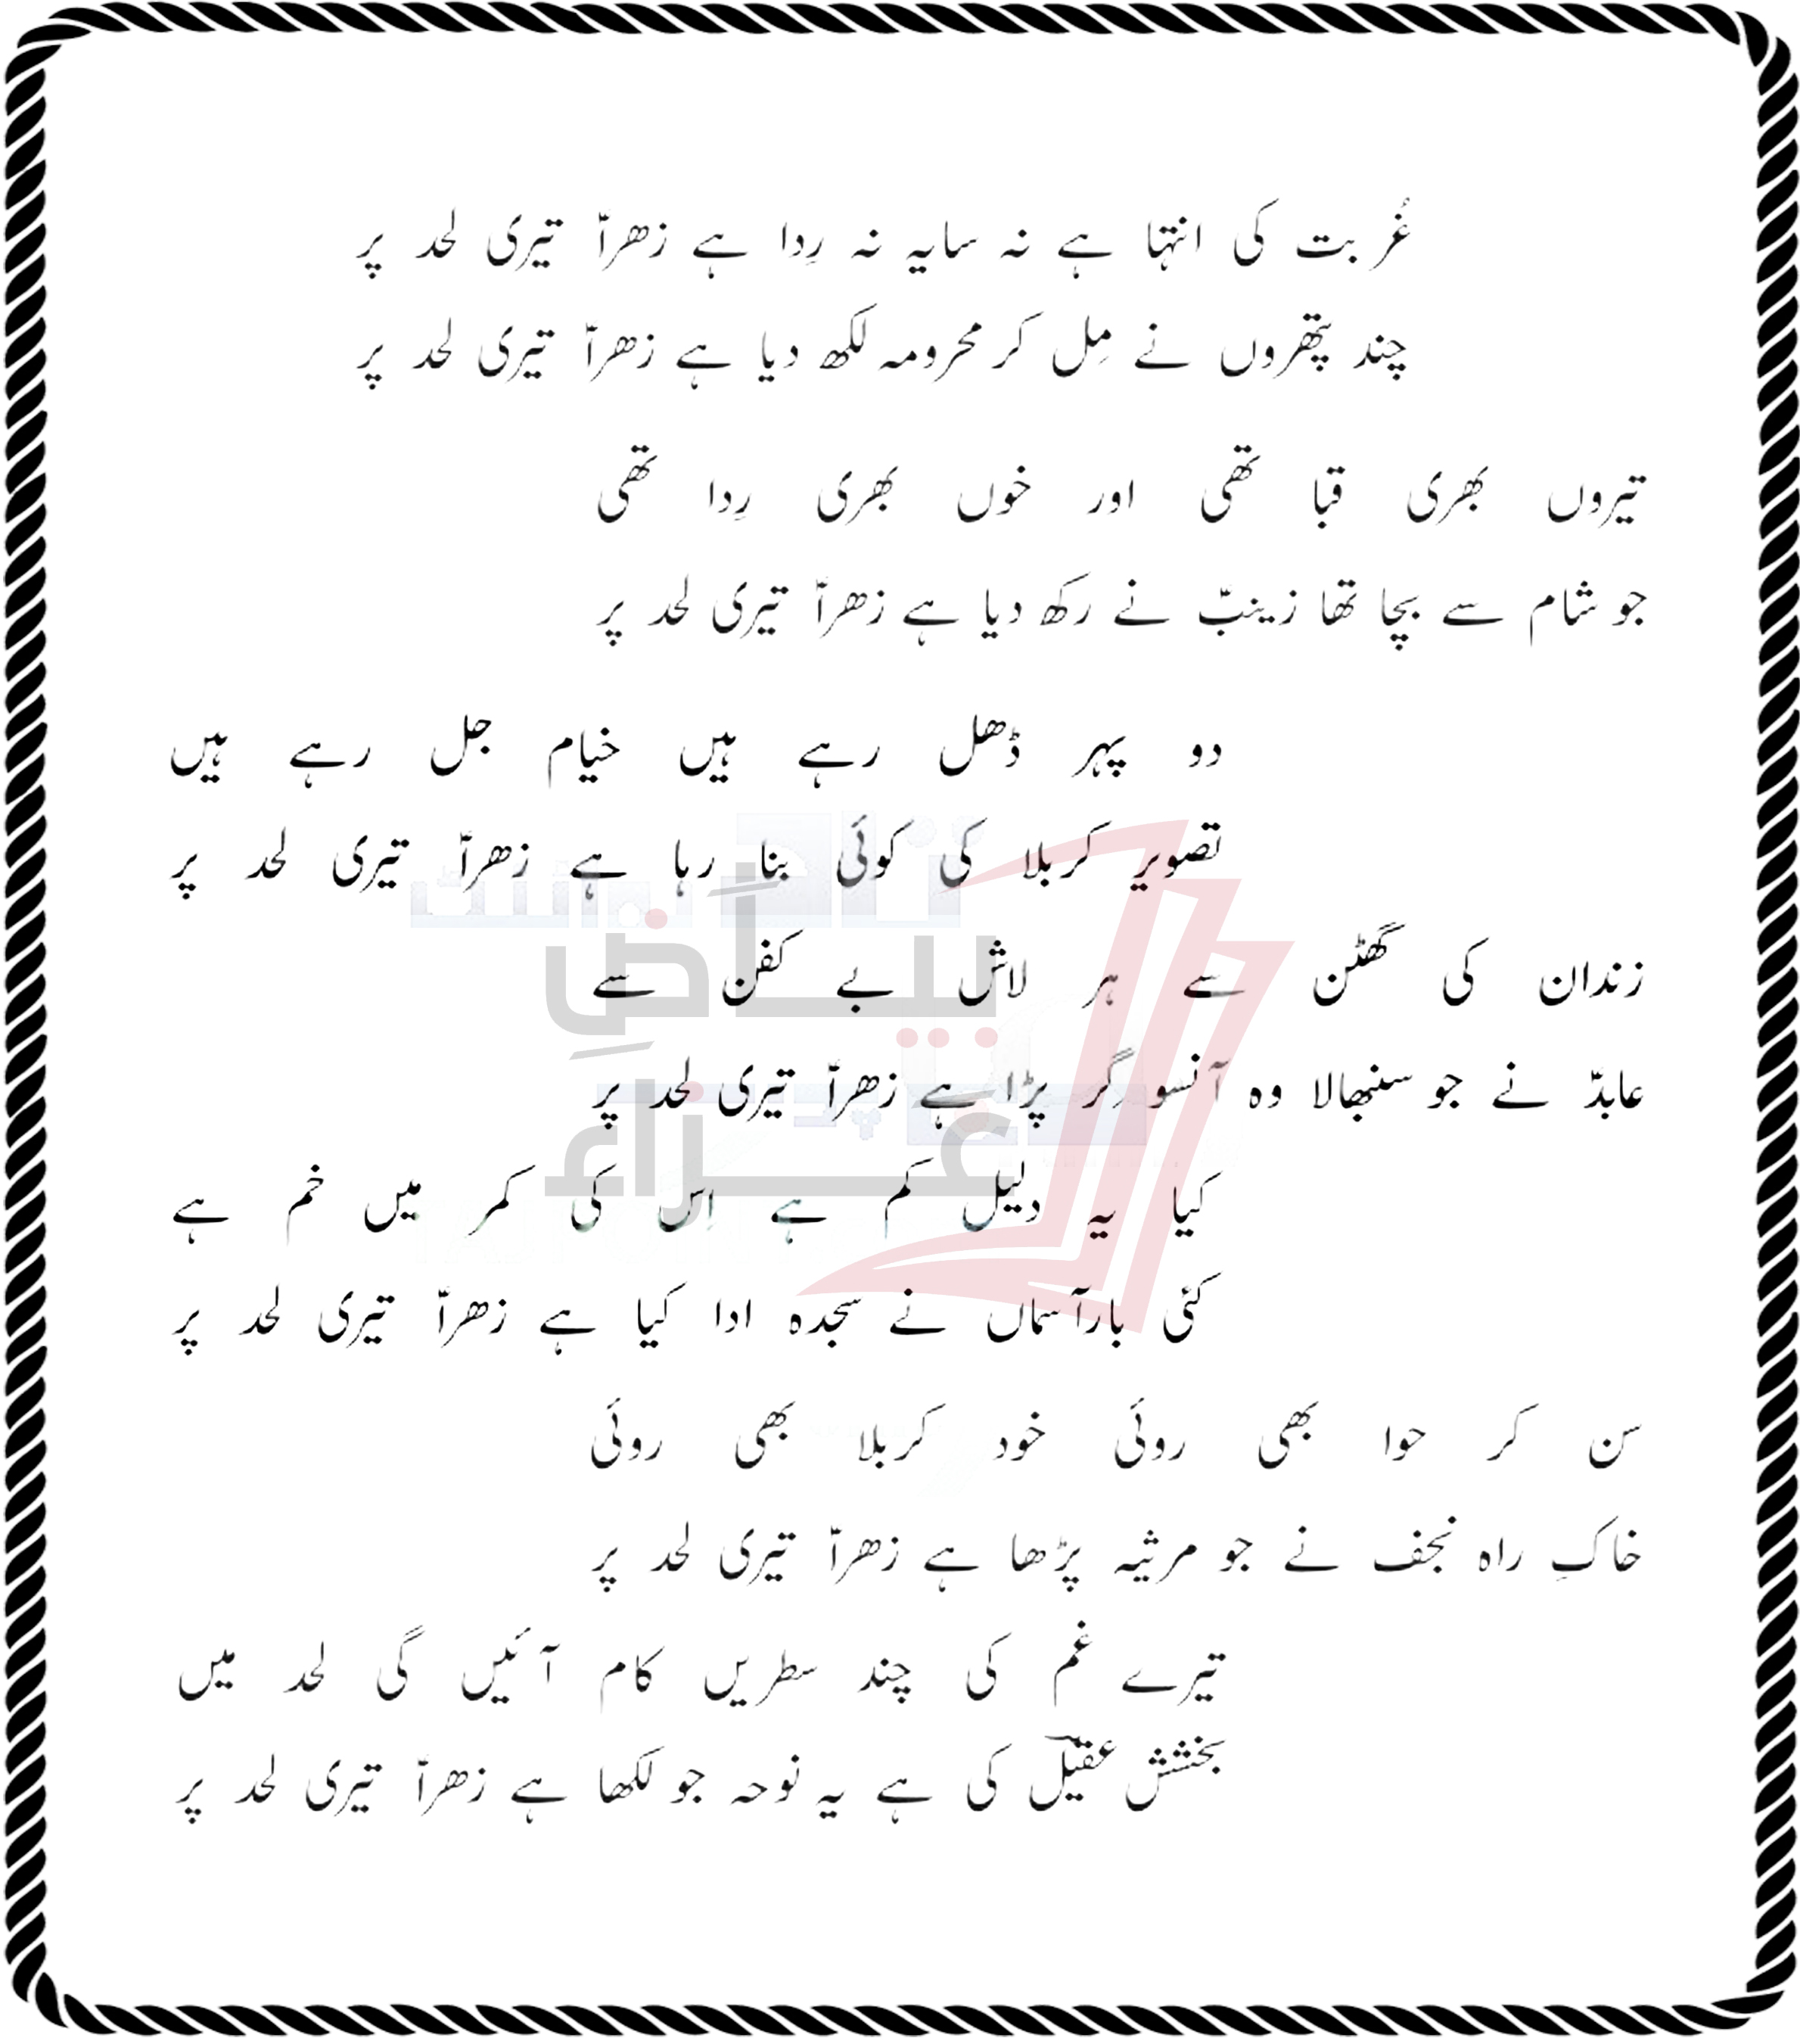 غُربت کی انتہا ہے نہ سایہ نہ رِدا ہے زھراؑ تیری لحد پر
چند پتھروں نے مِل کر محرومہ لکھ دیا ہے زھراؑ تیری لحد پر
تیروں بھری قبا تھی اور خوں بھری رِدا تھی
جو شام سے بچا تھا زینبؑ نے رکھ دیا ہے زھراؑ تیری لحد پر
دو پہر ڈھل رہے ہیں خیام جل رہے ہیں
تصویر کربلا کی کوئی بنا رہا ہے زھراؑ تیری لحد پر
زندان کی گھٹن سے ہر لاش بے کفن سے
عابدؑ نے جو سنبھالا وہ آنسو گِر پڑا ہے زھراؑ تیری لحد پر
کیا یہ دلیل کم ہے اِس کی کمر میں خم ہے
کئی بار آسماں نے سجدہ ادا کیا ہے زھراؑ تیری لحد پر
سن کر حوا بھی روئی خود کربلا بھی روئی
خاکِ راہ نجف نے جو مرثیہ پڑھا ہے زھراؑ تیری لحد پر
تیرے غم کی چند سطریں کام آئیں گی لحد میں
بخشش عقیلؔ کی ہے یہ نوحہ جو لکھا ہے زھراؑ تیری لحد پر
بیاضِ
عزاء